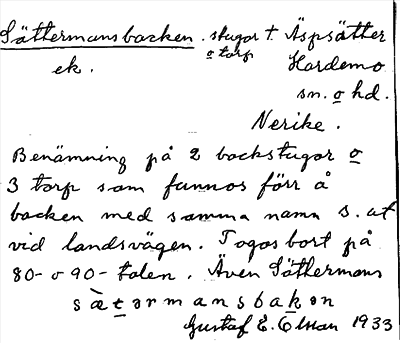 Sättermansbacken. stugor t. Äspsätter
o torp
ek. Hardemo
sn. o hd.
Nerike.
Benämning på 2 backstugor o
3 torp som funnos förr å
backen med samma namn s. ut
vid landsvägen. Togos bort på
80- o 90-talen. Även Sättermans
sætərmansbakən
Gustaf E. Olsson 1933